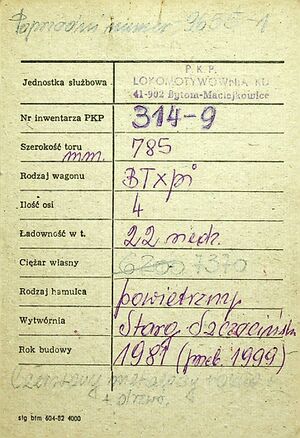 Poprzedni numer 9655-1
Jednostka służbowa P.K.P.
LOKOMOTYWOWNIA KD
41-902 Bytom-Maciejkowice
Nr inwentarza PKP 314-9
Szerokość toru mm. 785
Rodzaj wagonu BTxpi
Ilość osi 4
Ładowność w t. 22 siedz.
Ciężar własny 7370
Rodzaj hamulca powietrzny
Wytwórnia Starg. Szczeciński
Rok budowy 1981 (prek. 1999)
Czerwony
+ drewno
stg btm 604-82 4000